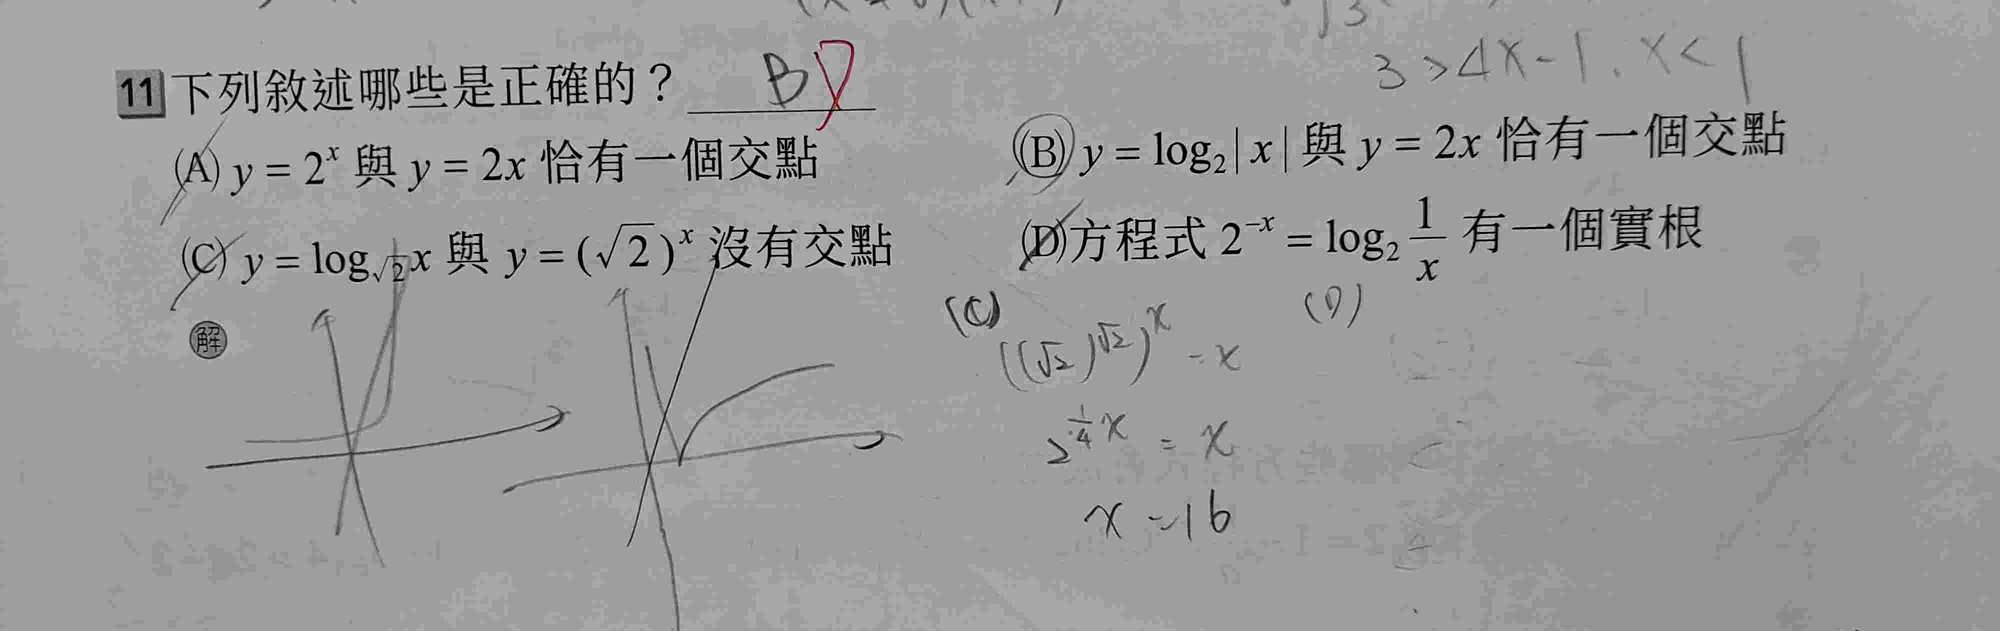 3 > 4x - 1 , x < 1
11 下列敘述哪些是正確的？ BD
(A) y = 2ˣ 與 y = 2x 恰有一個交點 (B) y = log₂|x| 與 y = 2x 恰有一個交點
(C) y = log√2 x 與 y = (√2)ˣ 沒有交點 (D) 方程式 2⁻ˣ = log₂ 1/x 有一個實根
解
(C) (D)
((√2)^√2)^x = x
2^(1/4 x) = x
x = 16